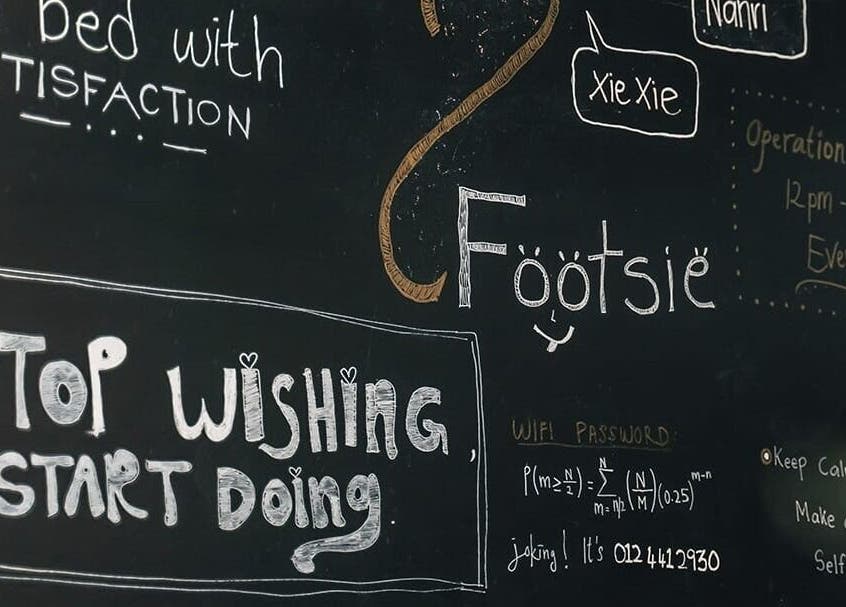 bed with
TISFACTION
Nahri
Xie Xie
Operation
12pm -
Eve
Föötsië
TOP WiSHiNG,
START DOing.
WIFI PASSWORD:
P(m≥N/2) = N∑m=n/2 (N/M) (0.25)^m-n
joking! It's 0124412930
Keep Cal
Make
Self